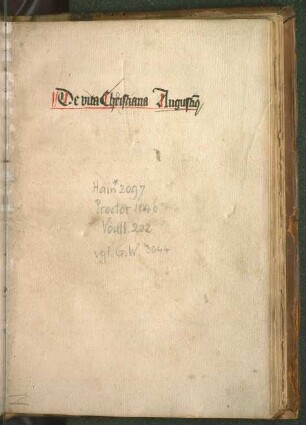 De vita Christiana Augustin9
Hain* 2097
Proctor 1146
Voull. 202
vgl. G.W. 3044